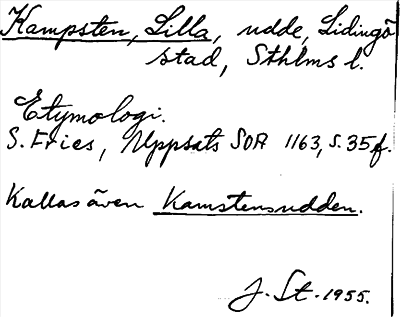 Kampsten, Lilla, udde, Lidingö
stad, Sthlms l.
Etymologi.
S. Fries, Uppsats SOA 1163, s. 35f.
Kallas även Kamstensudden.
J. St. 1955.